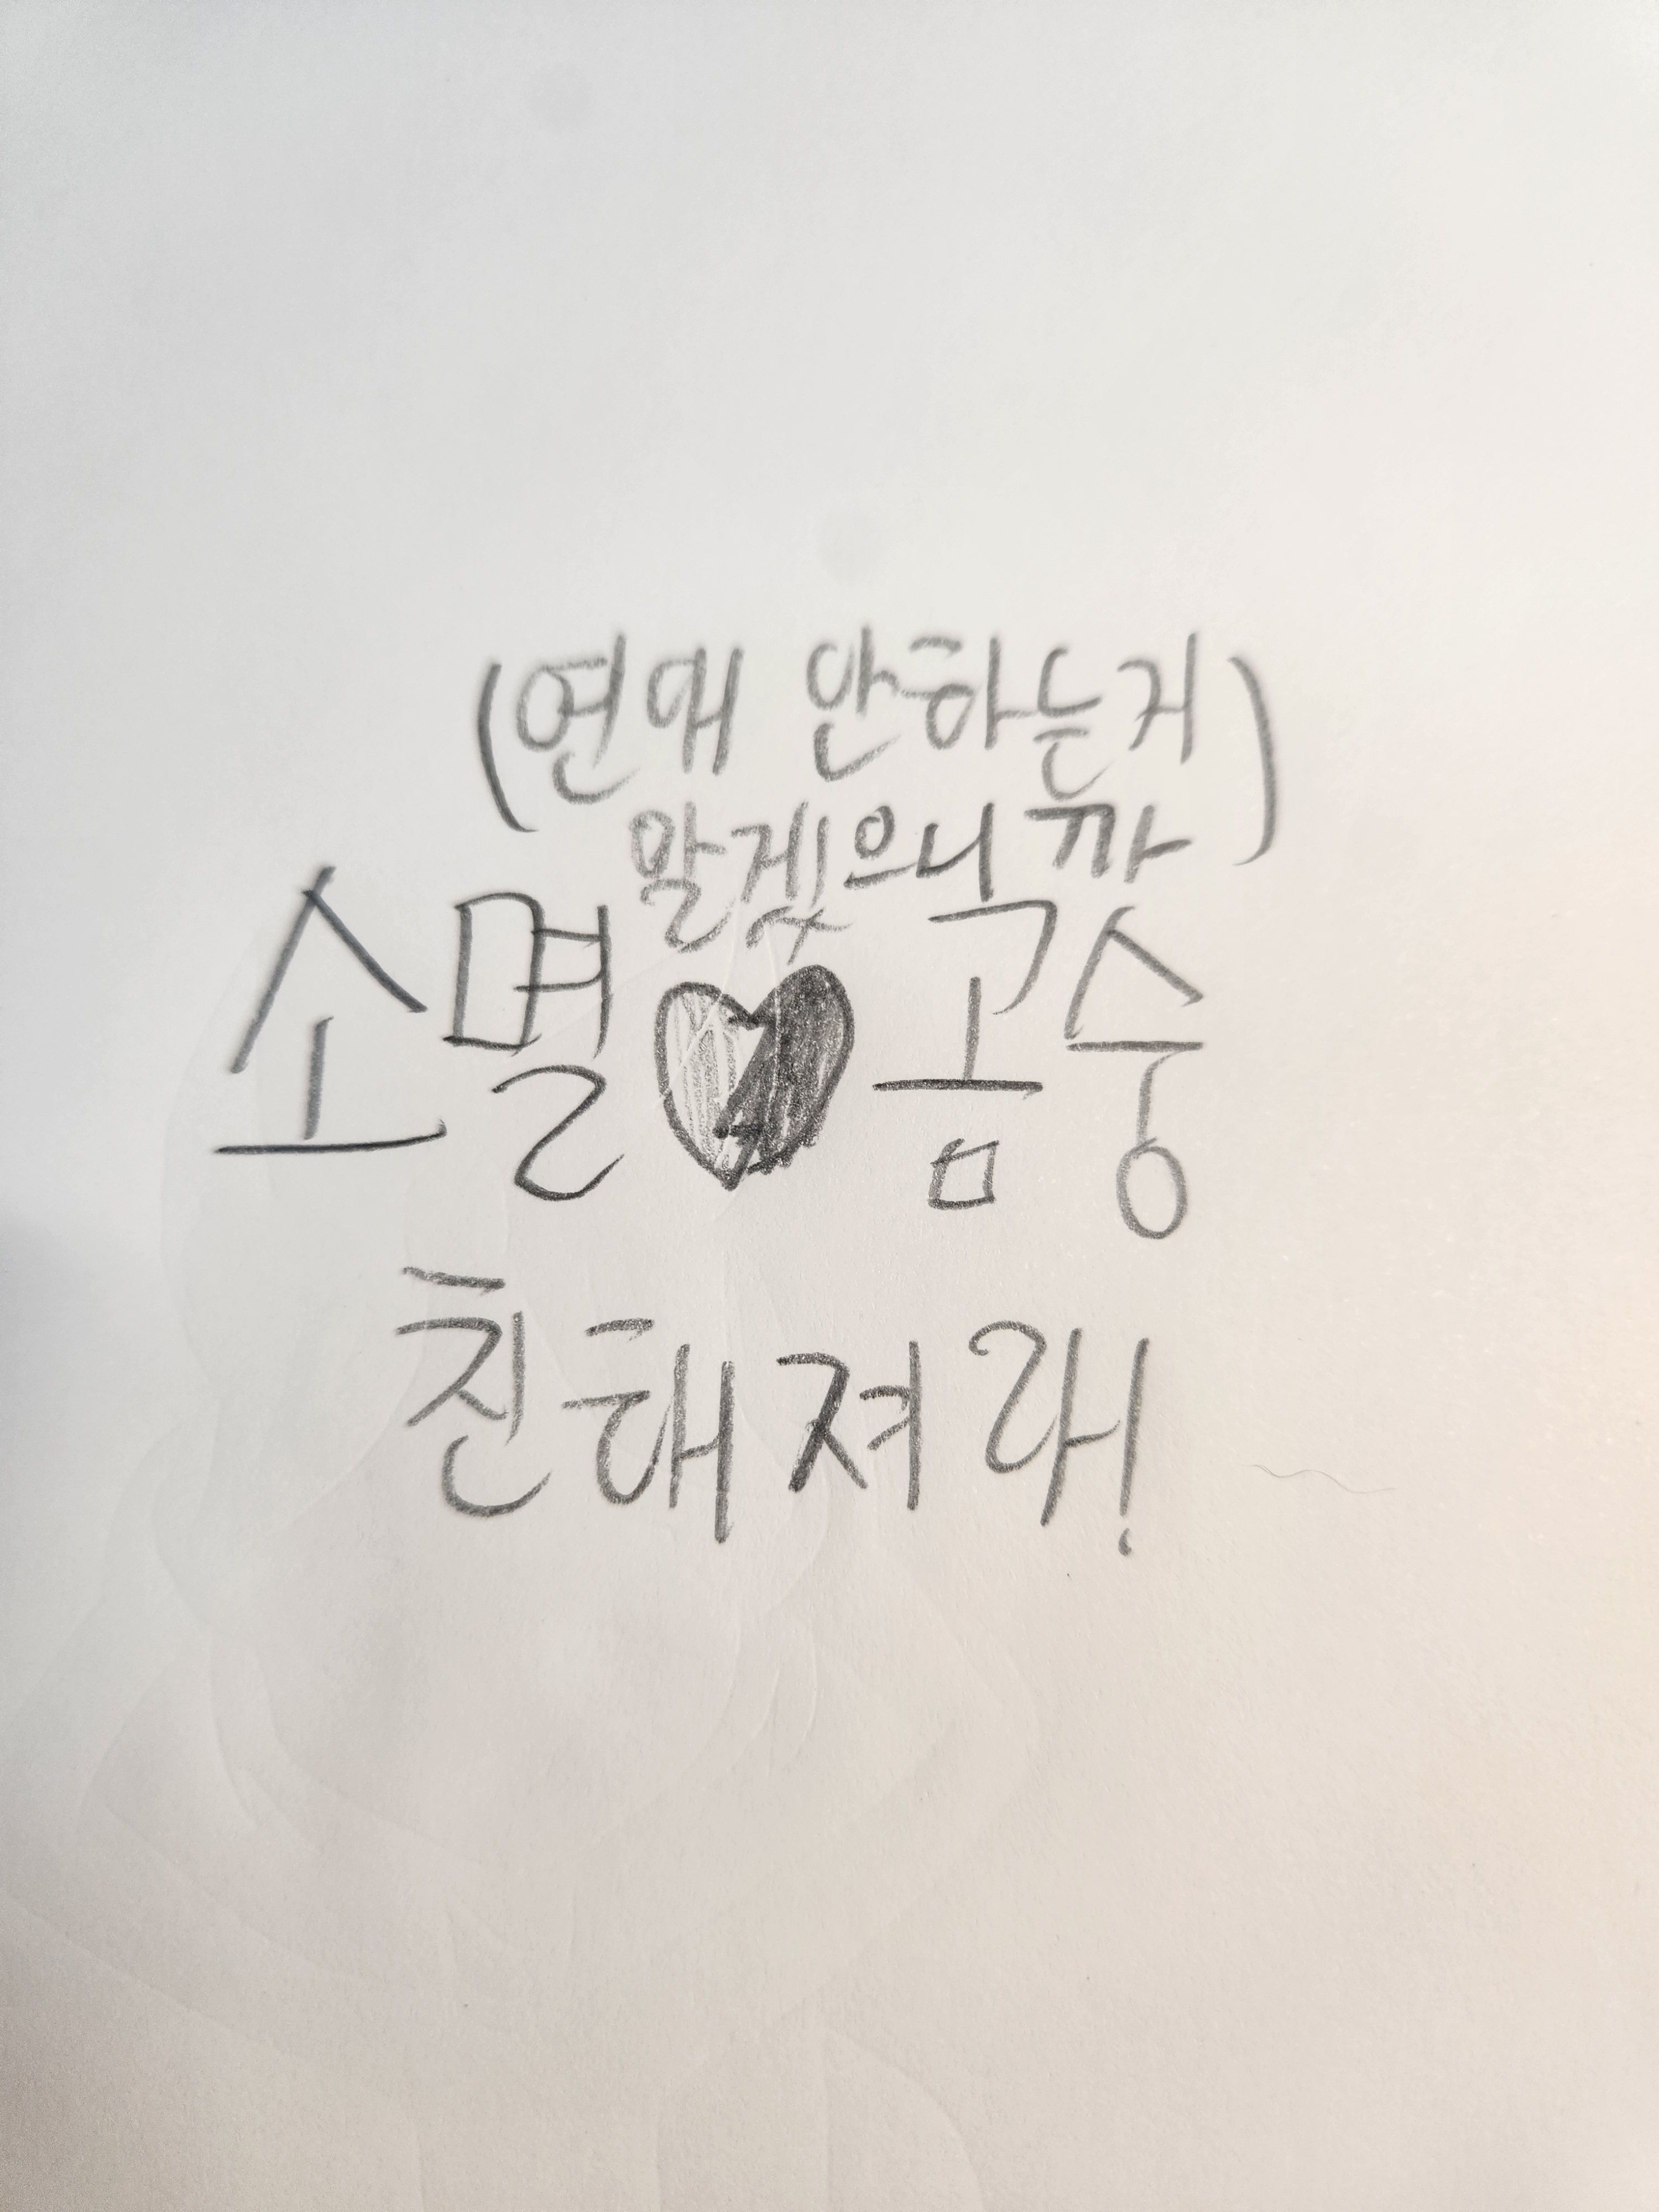 (연애 안하는거
말겠으니까)
소멸♥곰숭
친해져라!